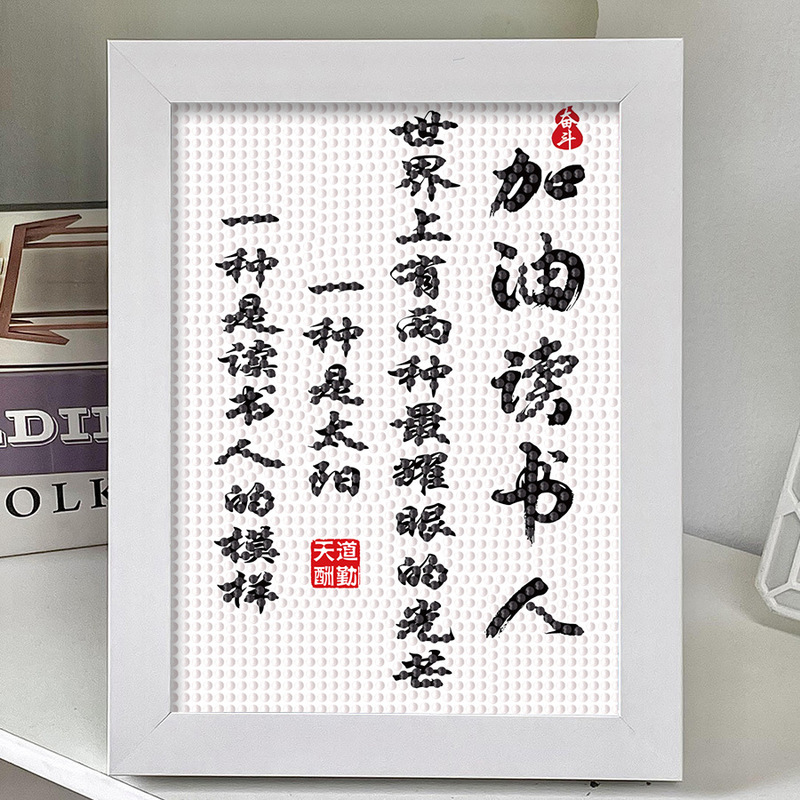 奋斗
加油读书人
世界上有两种最耀眼的光芒
一种是太阳
一种是读书人的模样
天道酬勤
ADII
OLK